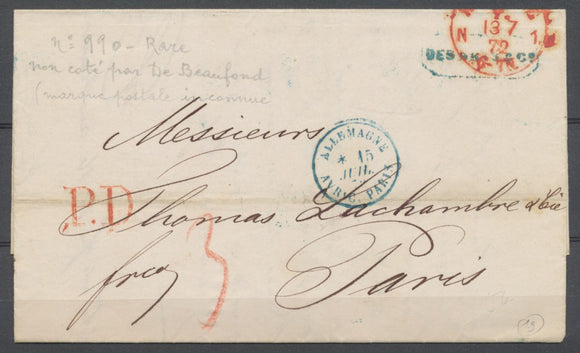 n° 990 - Rare
non coté par De Beaufond
(marque postale inconnue
13 7
N 1
72
Messieurs
ALLEMAGNE
* 15
JUIL
PARIS
P.D
Thomas Lachambre & Cie
3
frco
Paris
19